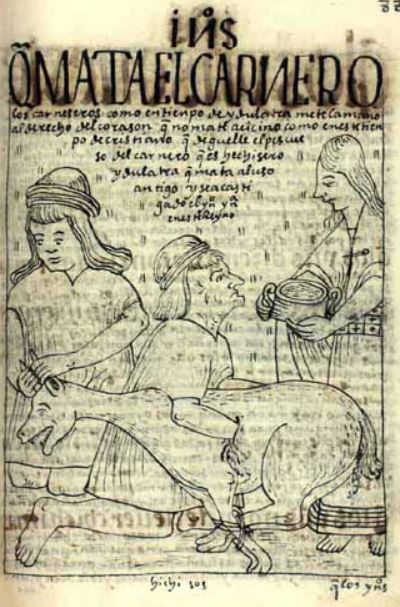 inos
Q̃ MATA EL CARNERO
los carneseros como en tienpo de ydulatra mete la mano
al derecho del corason q̃ no mate acicino como en este tien
po de cristiano q̃ deguelle el pescue
so del carnero q̃ es hechisero
ydulatra q̃ mata al uso
antigo y sea casti
gado el yn̄ y ya
en este rreyno
q̃ los yn̄s